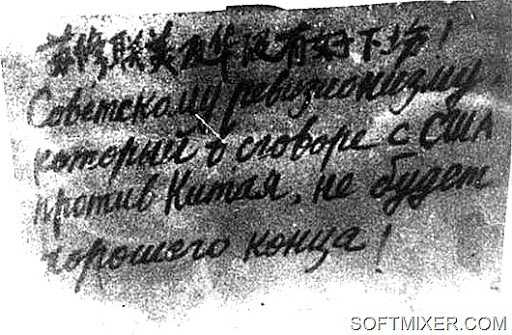 苏修联美反华没有好下场!
Советскому ревизионизму,
который в сговоре с США
против Китая, не будет
хорошего конца!
SOFTMIXER.COM